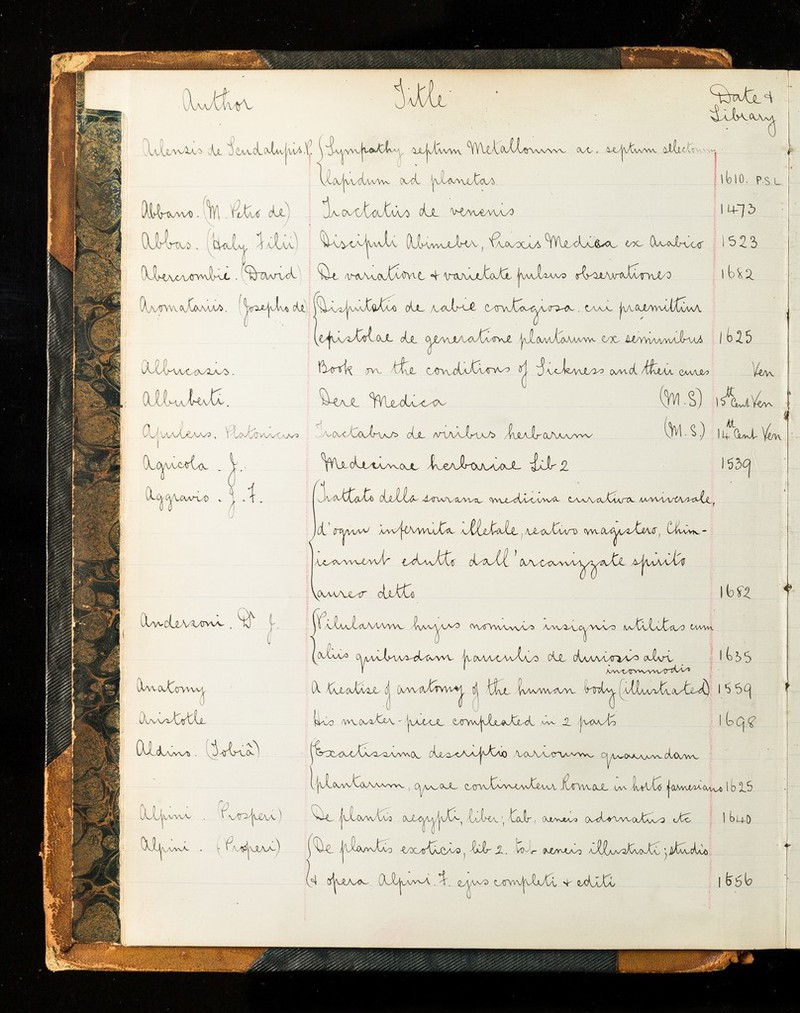 Author Title Date & Library
Arlensis de Scudalupis. P. Sympathy septum Metallorum ac. septum selectorum
lapidum ad planetas 1610. P.S.L
Abbano. (M. Petro de) Tractatus de venenis 1473
Abbas. (Haly Filii) Discipuli Abimeher, Praxis Medica ex Arabico 1523
Abercrombie. (David) De variatione & varietate pulsus observationes 1682
Aromatarius. (Josepho de) Disputatio de rabie contagiosa cui praemittitur
epistolae de generatione plantarum ex seminibus 1625
Albucasis. Book on the conditions of Sickness and their cures Ven
Albuberti. Dere Medica (M.S) 15th Cent Ven
Apuleus. Platonicus Tractabus de viribus herbarum (M.S.) 14th Cent Ven
Agricola. J. Medecinae herbariae Lib 2 1539
Aggravio. J. F. Trattato della sourana medicina curativa universale,
d'ognu infermita illetale, reativo magistero, Chim-
icament edutto dall'arcanizzate spirito
aureo detto 1682
Andersoni. Dr J. Pilularum hujus nominis insignis utilitas cum
aliis quibusdam pauculis de duriosis alvi 1635
incommodis
Anatomy A treatise of anatomy of the human body (illustrated) 1559
Aristotle His master-piece compleated in 2 parts 1698
Aldino. (Tobiâ) Exactissima descriptio rariorum quarundam
plantarum, quae continenteur Romae in horto farnesiano 1625
Alpini. (Prosperi) De plantis aegypti, liber; tab. aeneis adornatus etc 1640
Alpini. (Prosperi) De plantis exoticis, lib 2. tab aeneis illustrati; studio
& opera Alpini. F. ejus completi & editi 1656